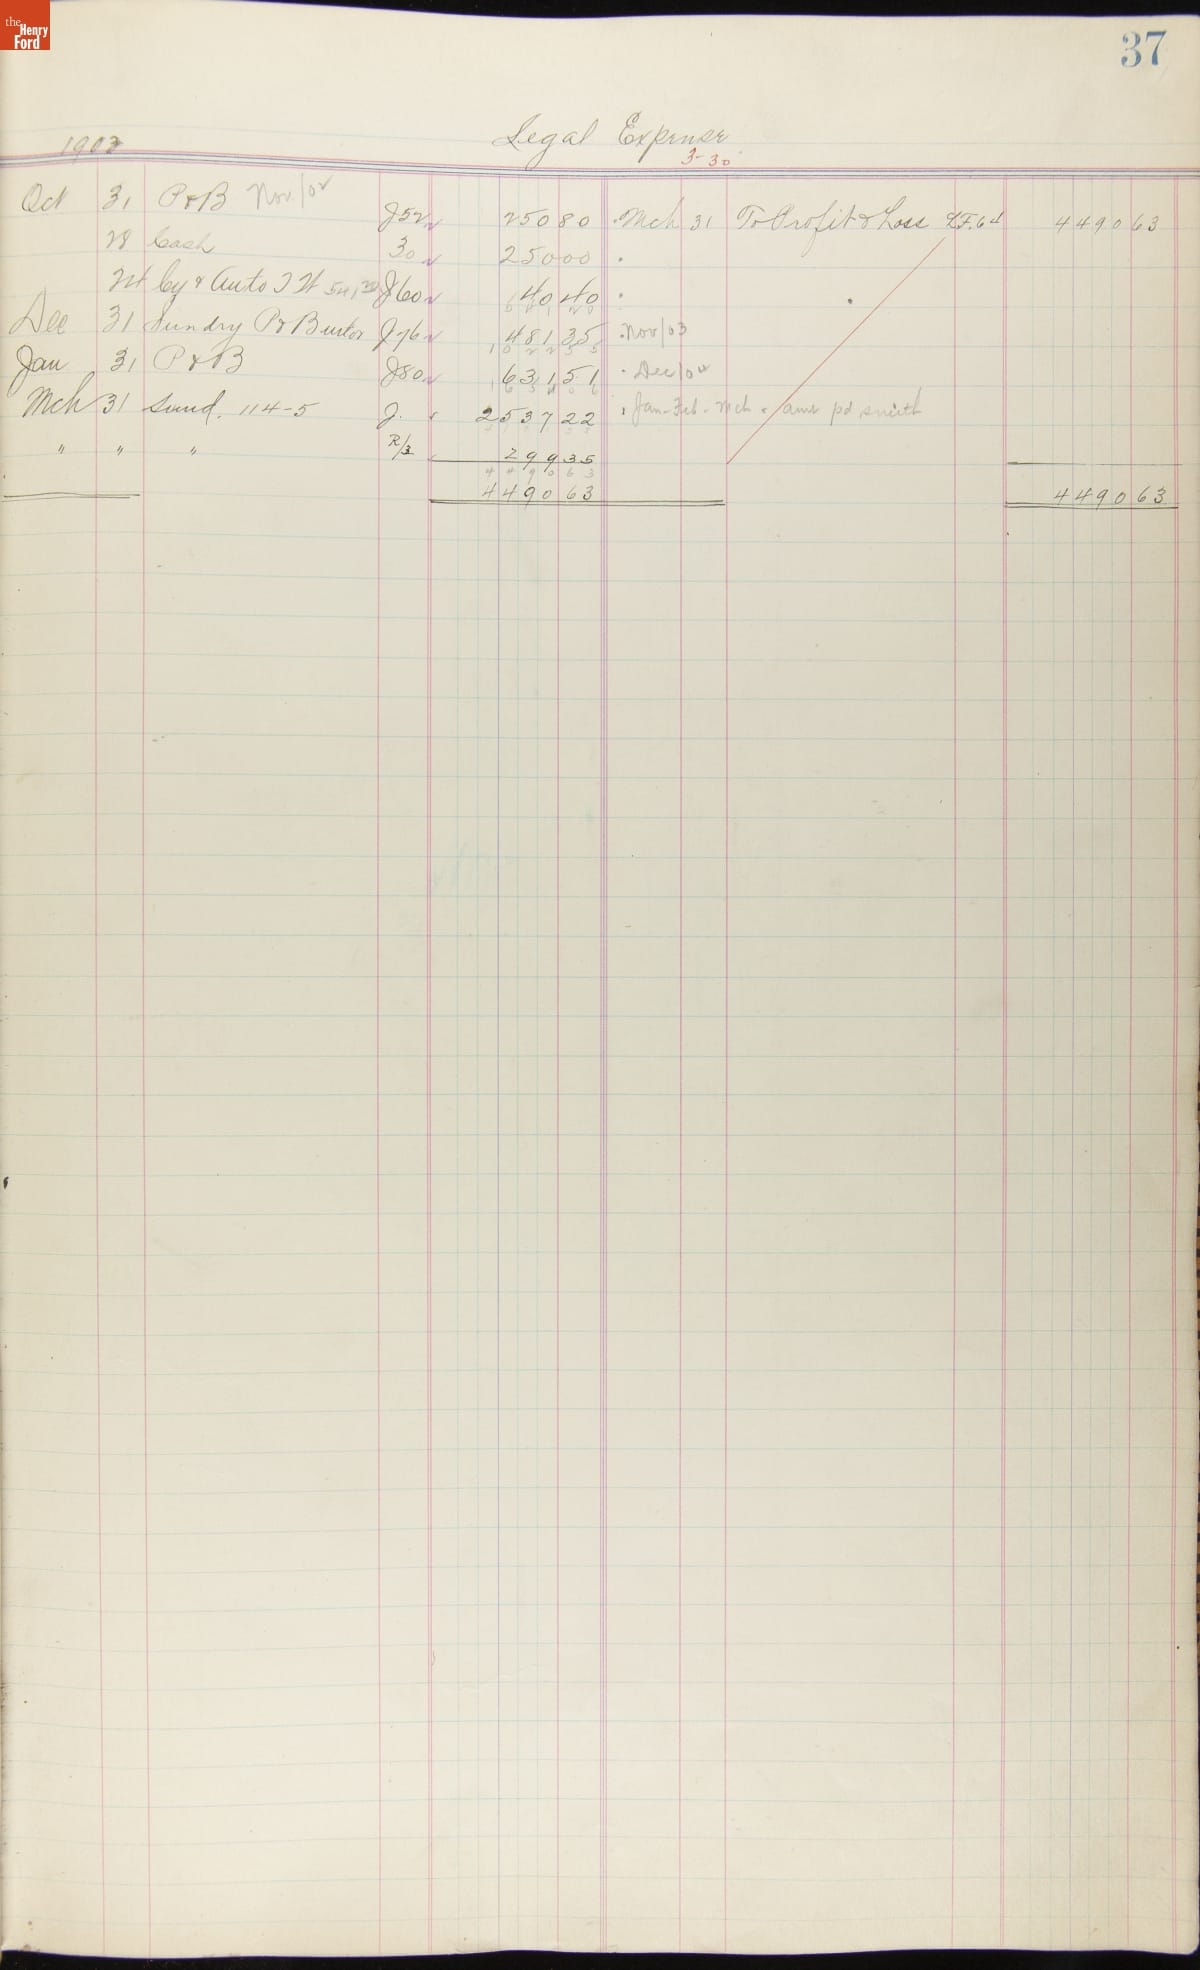 the
Henry
Ford
37
1903
Legal Expense
3-30
Oct 31 P & B Nov/02 J52 250 80 Mch 31 To Profit & Loss LF.64 4490 63
28 Cash 30 250 00
24 Cy & Auto J60 40 40
541 20
Dec 31 Sundry P & B J76 481 35 Nov/03
1022 55
Jan 31 P & B J80 631 51 Dec/02
Mch 31 Sund. 114-5 J. 2537 22 Jan-Feb-Mch & amt pd smith
" " " R/3 299 35
4490 63
4490 63 4490 63